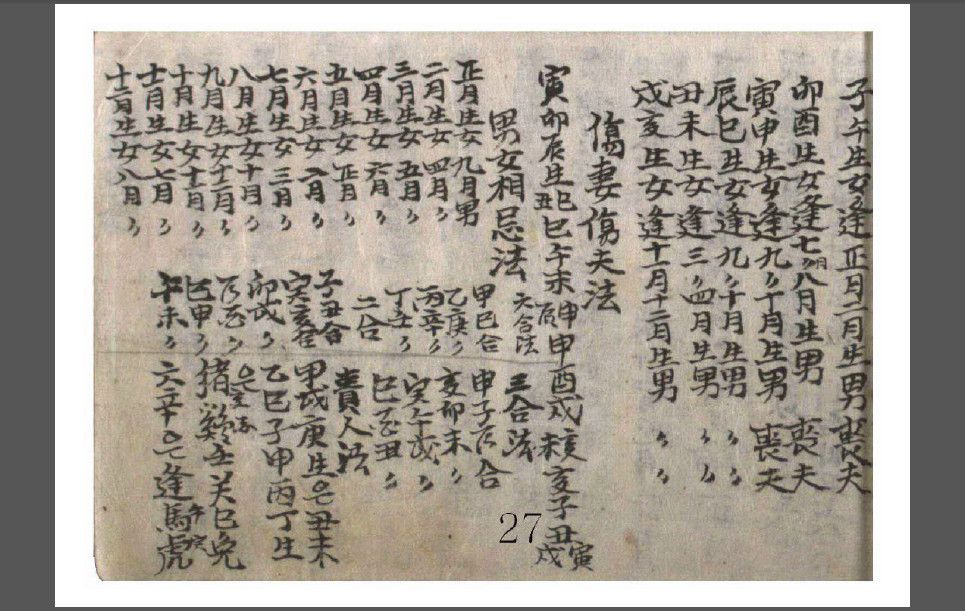 子午生女逢正月二月生男喪夫
卯酉生女逢七月八月生男喪夫
寅申生女逢九〻十月生男喪夫
辰巳生女逢九〻十月生男〻〻
丑未生女逢三〻四月生男〻〻
戌亥生女逢十一月十二月生男〻〻
傷妻傷夫法
寅卯辰生巳丑巳午未申辰申酉戌亥未亥子丑寅戌
男女相忌法
正月生女九月男
二月生女四月〻
三月生女五月〻
四月生女六月〻
五月生女正月〻
六月生女二月〻
七月生女三月〻
八月生女十月〻
九月生女十二月〻
十月生女十一月〻
十一月生女七月〻
十二月生女八月〻
六合法
甲巳合
乙庚〻
丙辛〻
丁壬〻
二合
子丑合
寅亥合
卯戌〻
巳申〻
午未〻
三合法
申子辰合
亥卯未〻
寅午戌〻
巳酉丑〻
貴人法
甲戊庚生丑未
乙巳子申丙丁生
猪鷄壬癸巳兔
六辛逢馬虎
27